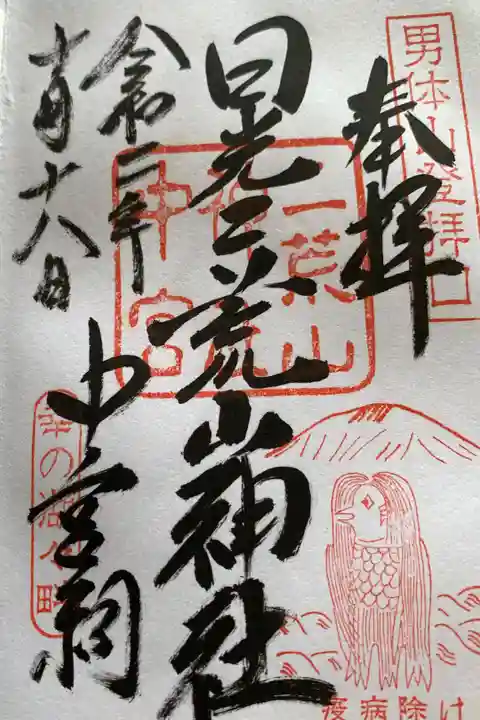 奉拝
男体山登拝口
日光二荒山神社
中宮祠
二荒山
神社
中宮
令和二年
十月十八日
幸の湖
疫病除け